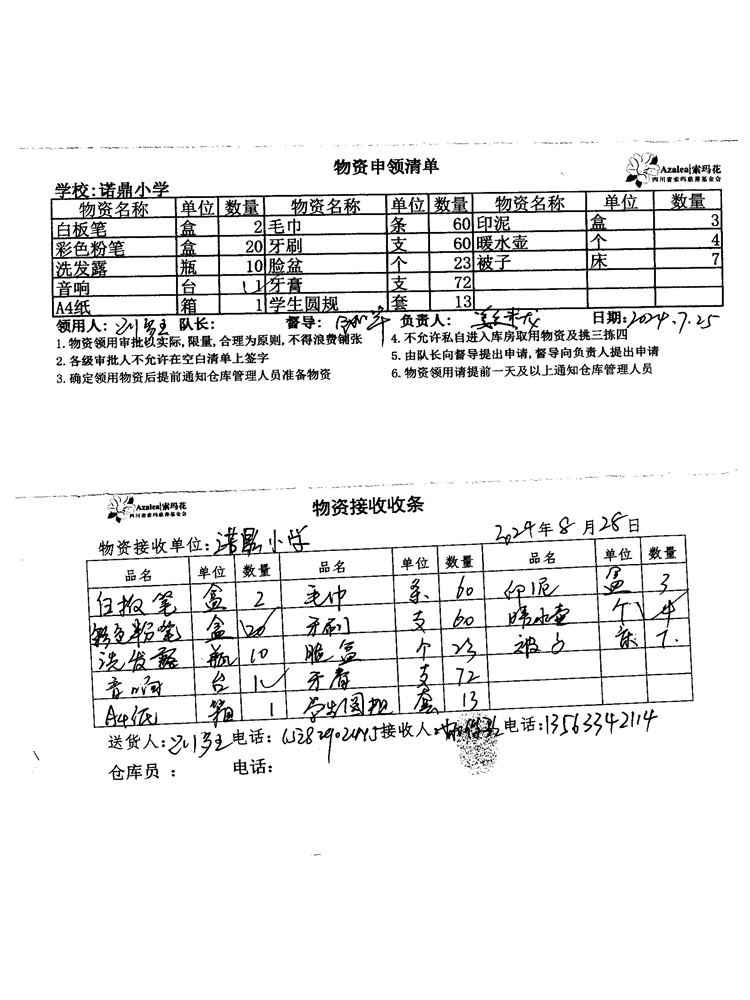 物资申领清单
Azalea|索玛花
四川省索玛慈善基金会
学校:诺鼎小学
物资名称 单位 数量 物资名称 单位 数量 物资名称 单位 数量
白板笔 盒 2 毛巾 条 60 印泥 盒 3
彩色粉笔 盒 20 牙刷 支 60 暖水壶 个 4
洗发露 瓶 10 脸盆 个 23 被子 床 7
音响 台 1 牙膏 支 72
A4纸 箱 1 学生圆规 套 13
领用人: 队长: 督导: 负责人: 日期:2024.7.25
1.物资领用审批以实际,限量,合理为原则,不得浪费铺张 4.不允许私自进入库房取用物资及挑三拣四
2.各级审批人不允许在空白清单上签字 5.由队长向督导提出申请,督导向负责人提出申请
3.确定领用物资后提前通知仓库管理人员准备物资 6.物资领用请提前一天及以上通知仓库管理人员
Azalea|索玛花
四川省索玛慈善基金会
物资接收收条
物资接收单位:诺鼎小学 2024年8月28日
品名 单位 数量 品名 单位 数量 品名 单位 数量
白板笔 盒 2 毛巾 条 60 印泥 盒 3
彩色粉笔 盒 20 牙刷 支 60 暖水壶 个 4
洗发露 瓶 10 脸盆 个 23 被子 床 7.
音响 台 1 牙膏 支 72
A4纸 箱 1 学生圆规 套 13
送货人: 电话: 接收人: 电话:13563342114
仓库员 : 电话: